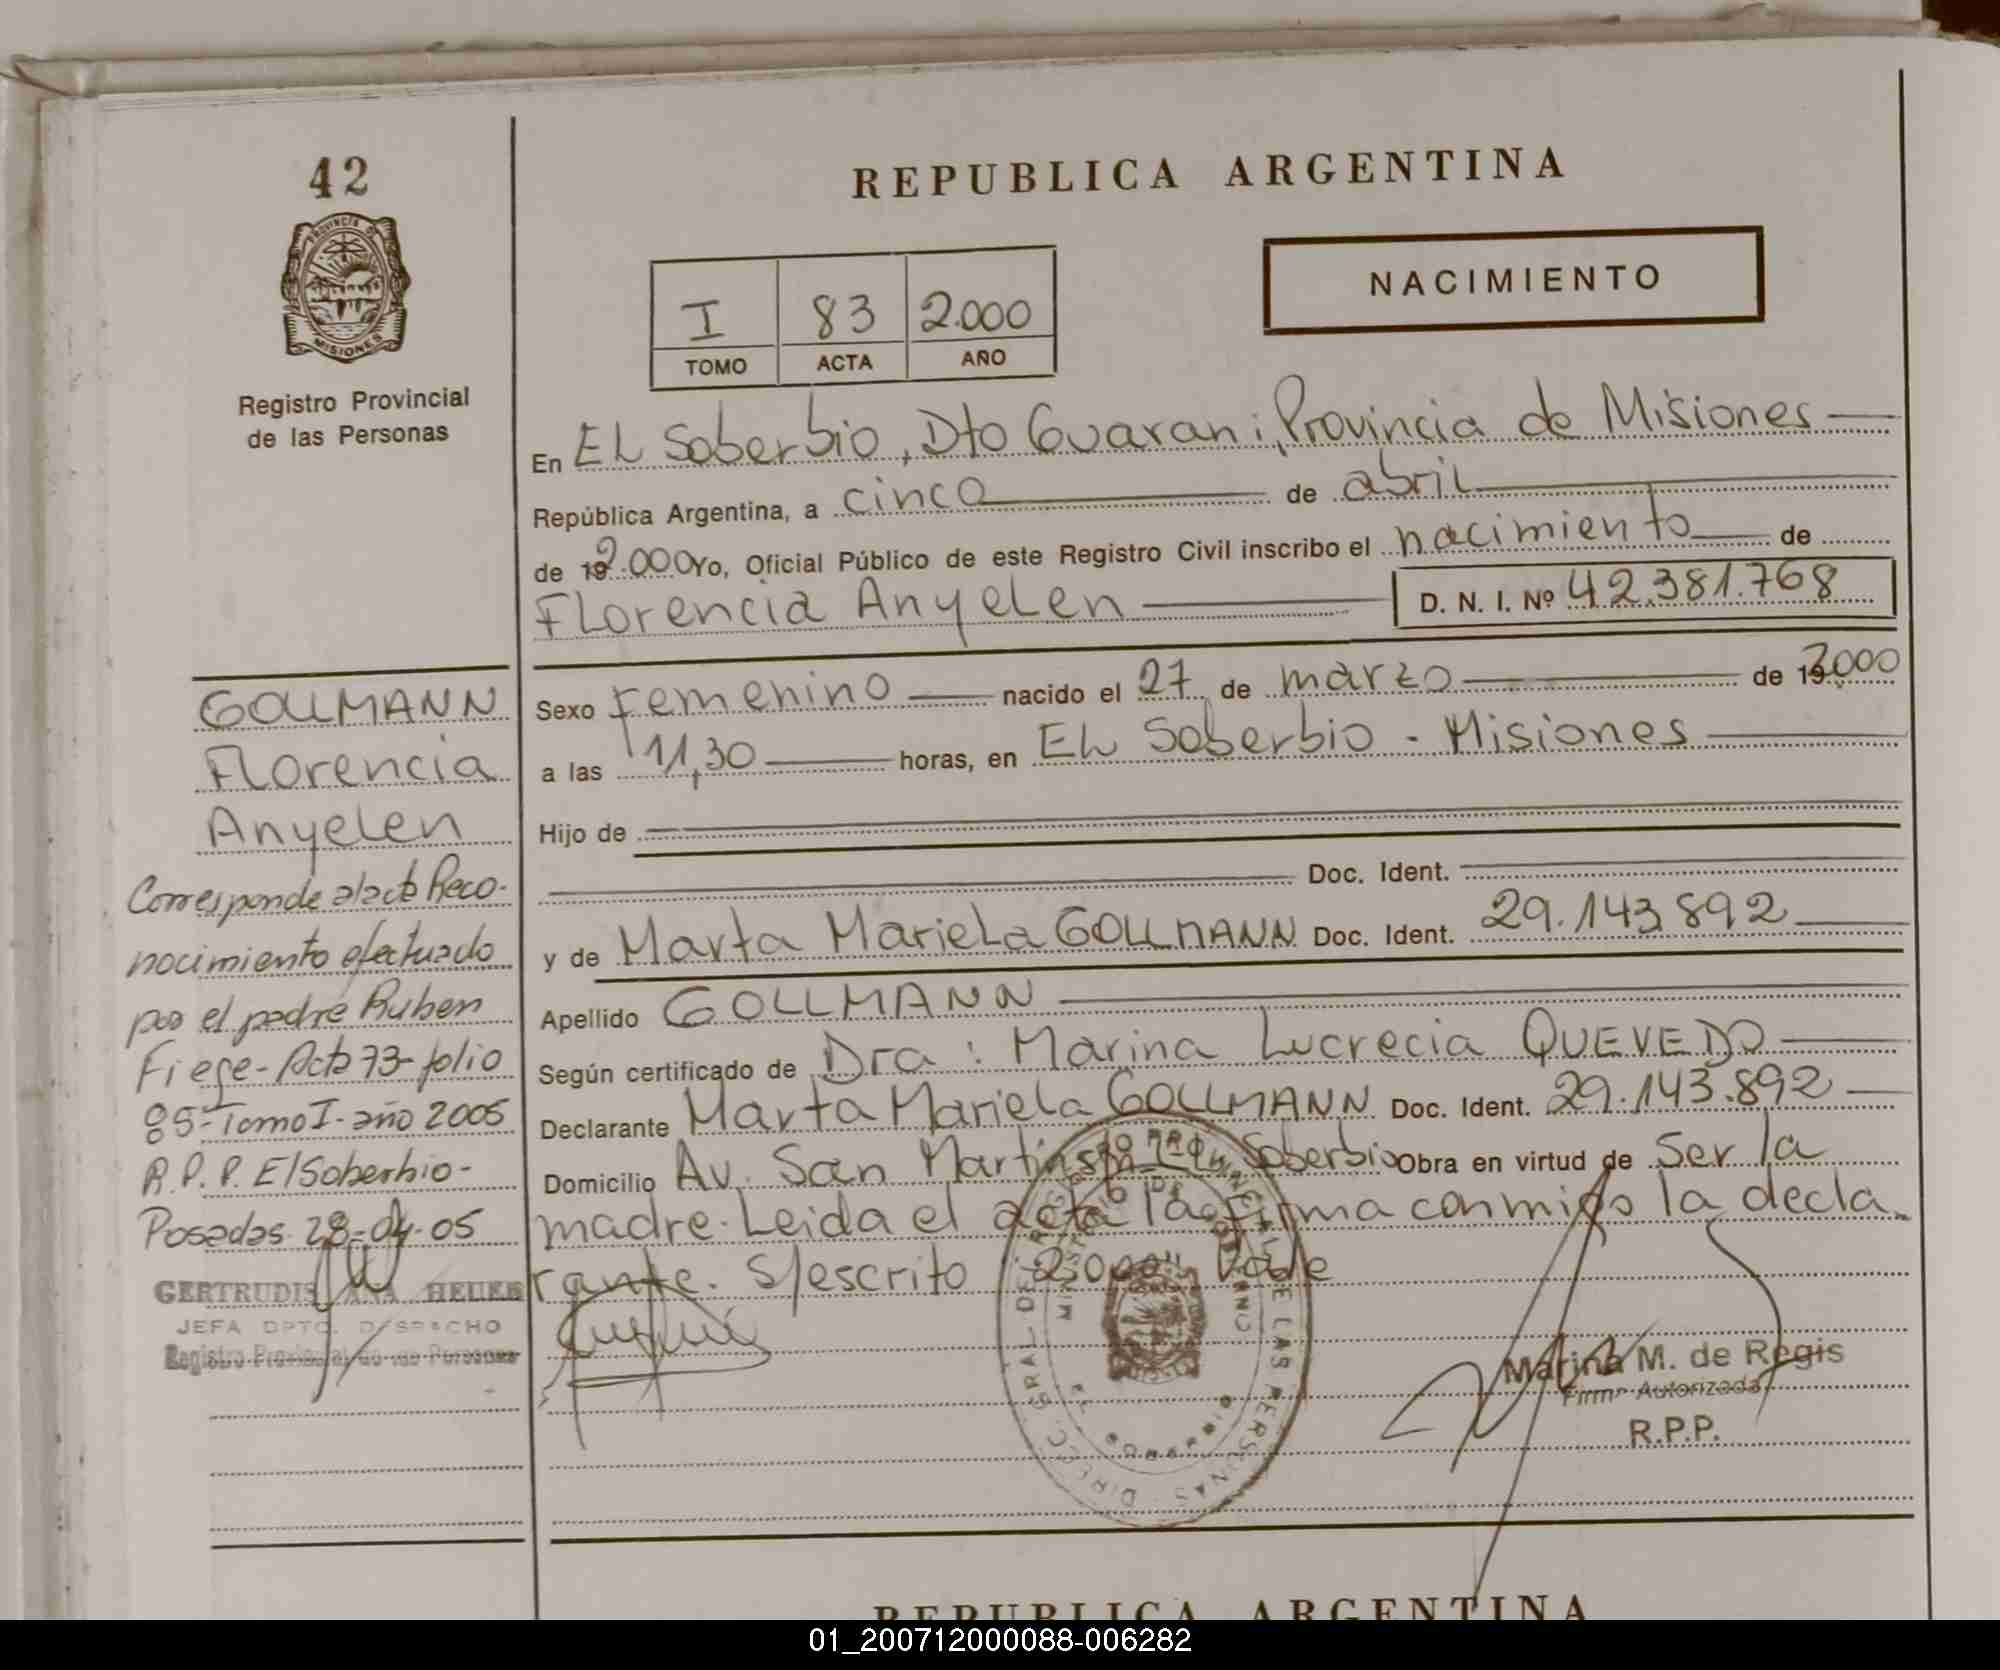 42
PROVINCIA DE
MISIONES
Registro Provincial
de las Personas
REPUBLICA ARGENTINA
I 83 2.000
TOMO ACTA AÑO
NACIMIENTO
En EL Soberbio, Dto Guarani, Provincia de Misiones
República Argentina, a cinco de abril
de 192.000 Yo, Oficial Público de este Registro Civil inscribo el nacimiento de
Florencia Anyelen D. N. I. Nº 42.381.768
Sexo Femenino nacido el 27 de marzo de 192000
a las 11,30 horas, en EL Soberbio - Misiones
Hijo de
Doc. Ident.
y de Marta Mariela GOLLMANN Doc. Ident. 29.143.892
Apellido GOLLMANN
Según certificado de Dra: Marina Lucrecia QUEVEDO
Declarante Marta Mariela GOLLMANN Doc. Ident. 29.143.892
Domicilio Av. San Martin s/n Soberbio Obra en virtud de Ser la
madre. Leida el acta la firma conmigo la decla
rante. S/escrito "2.000" Vale
GOLLMANN
Florencia
Anyelen
Corresponde al acta Reco-
nocimiento efectuado
por el padre Ruben
Fiege - Acta 73 - folio
85 - Tomo I - año 2005
R.P.P. El Soberbio -
Posadas 28-04-05
GERTRUDIS ANA HEUER
JEFA DPTO. DESPACHO
Registro Provincial de las Personas
DIREC. GRAL. DEL REGISTRO PROVINCIAL DE LAS PERSONAS
MINISTERIO DE GOBIERNO
Marina M. de Regis
Firma Autorizada
R.P.P.
REPUBLICA ARGENTINA
01_200712000088-006282